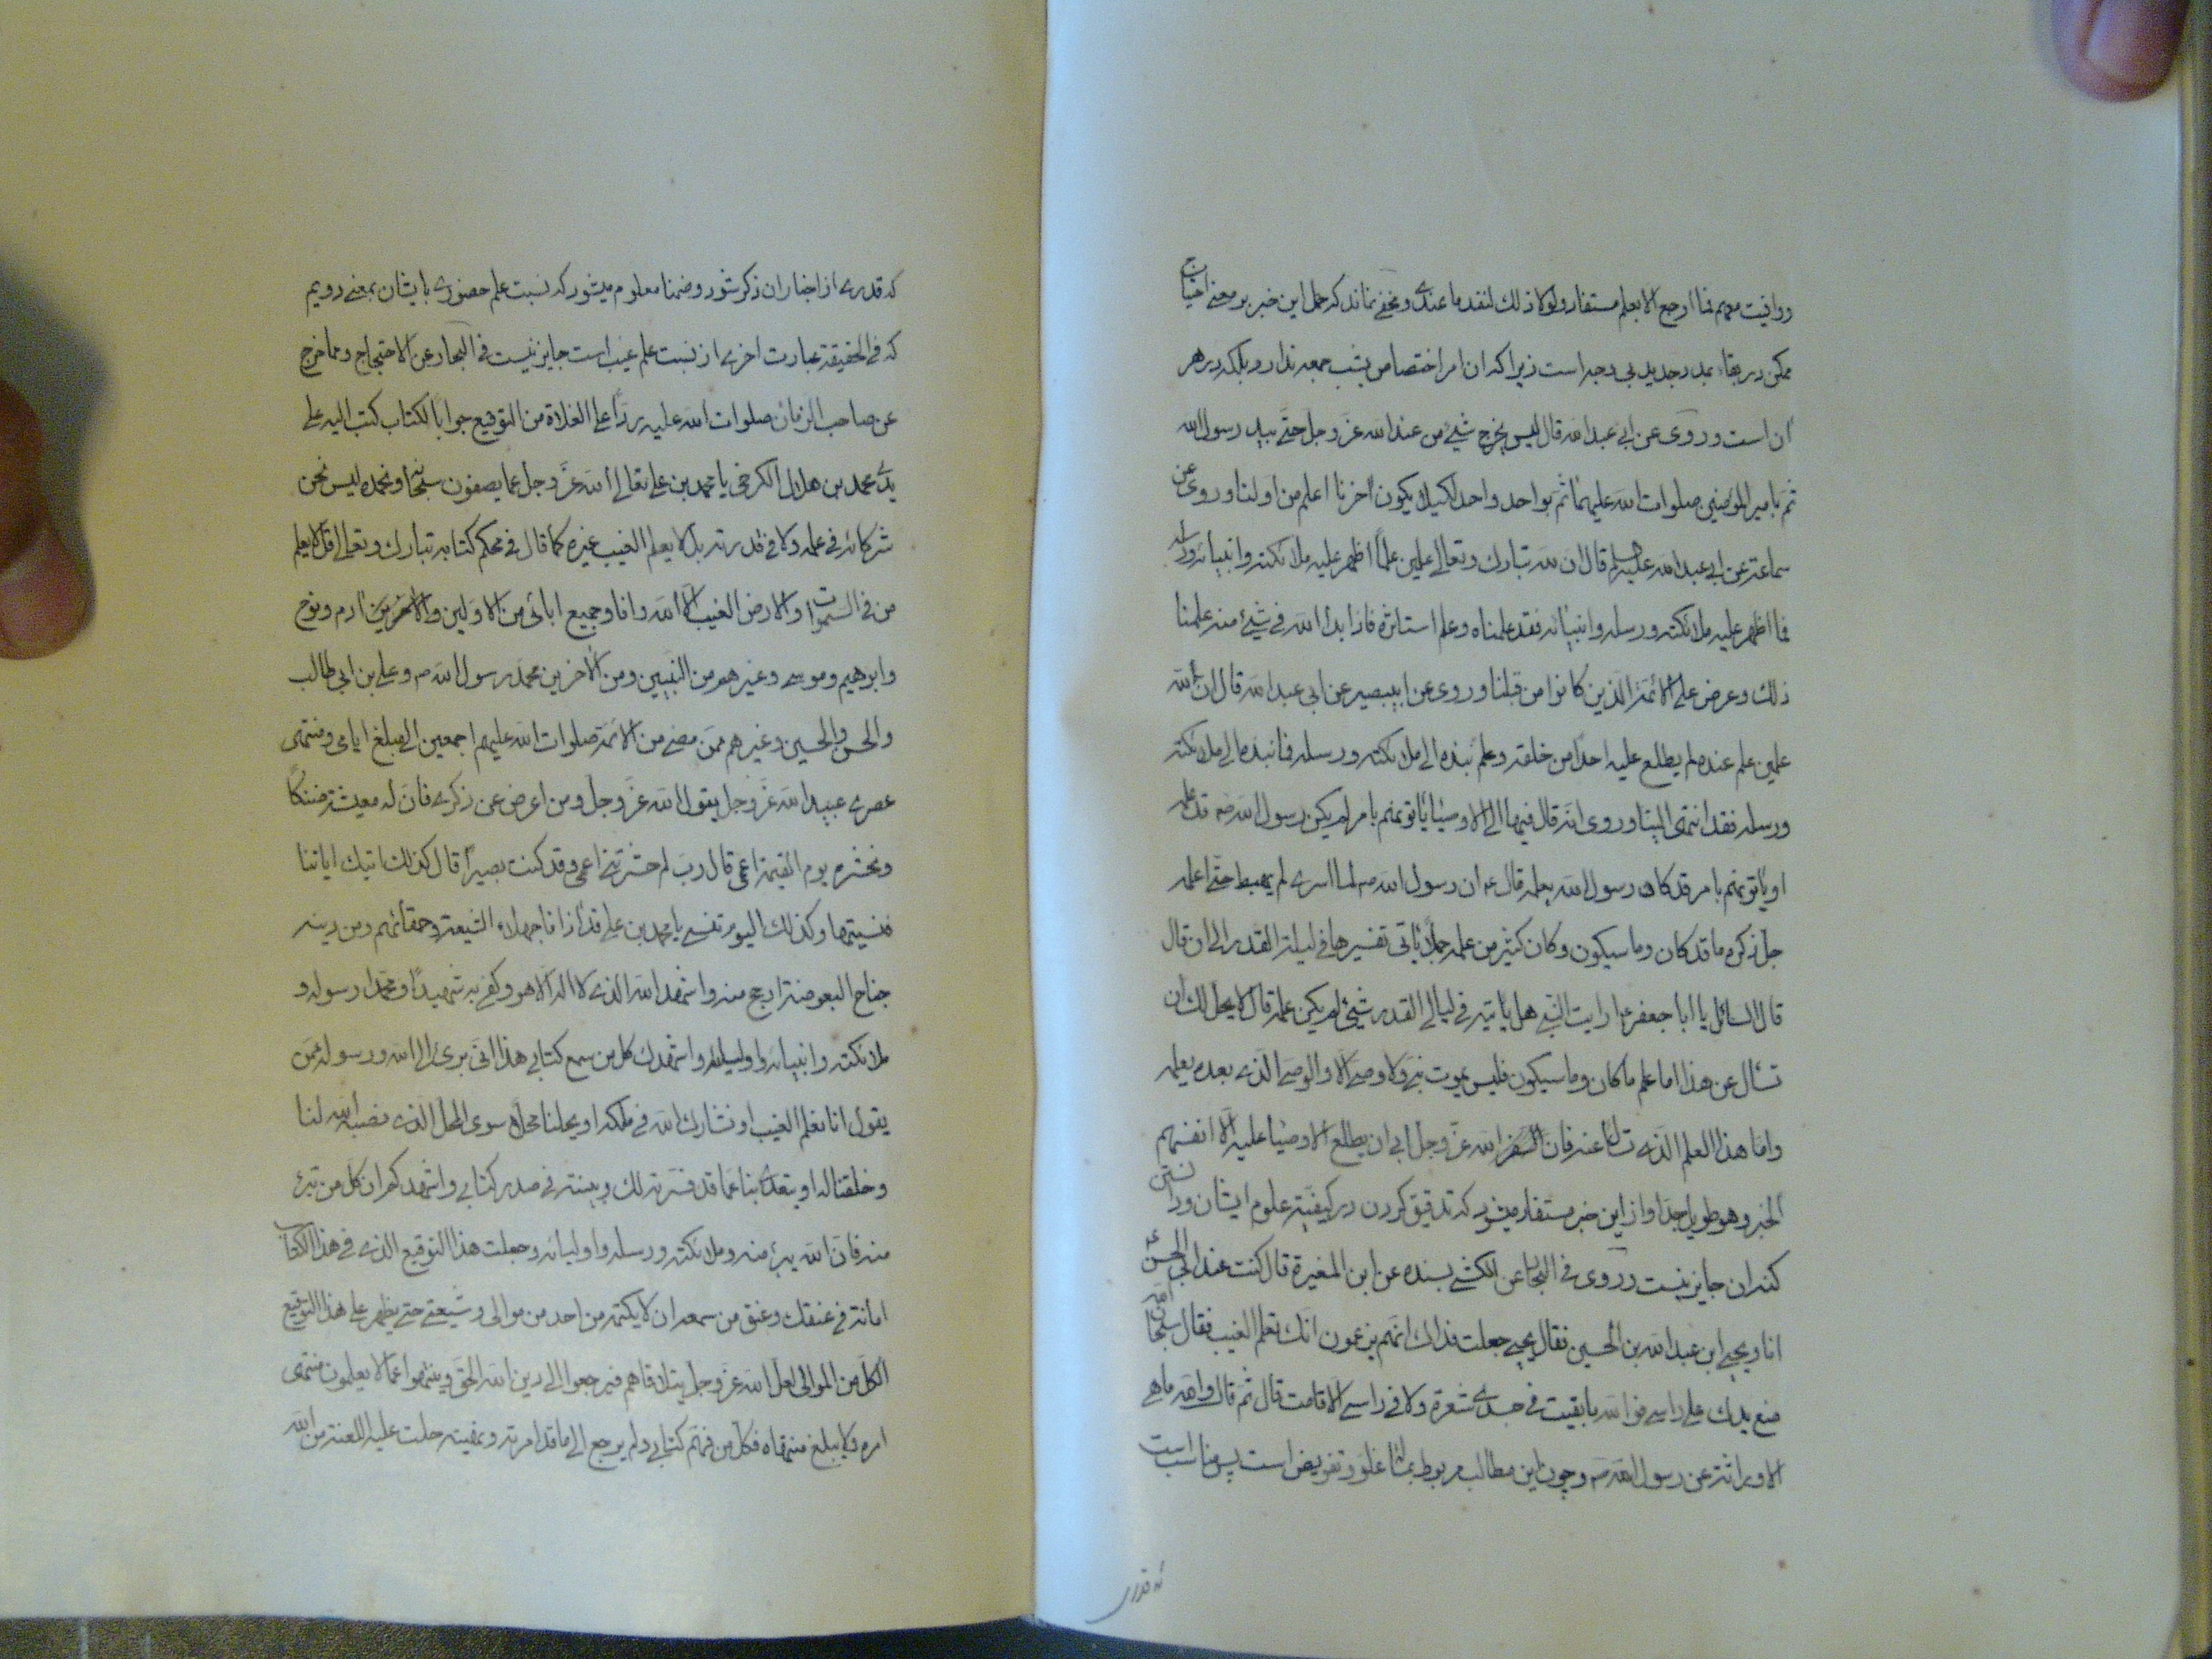 ووافیت معهم فما ارجع الا بعلم مستفاد ولولا ذلك لنفد ما عندی و مخفی نماند که حمل این خبر بر معنی احتیاج
ممکن در بقاء بمدد جدید بی وجه است زیرا که ان امر اختصاص بشب جمعه ندارد بلکه در هر
آن است و روی عن ابی عبد الله قال لیس یخرج شئ من عند الله عزّ وجل حتّی یبدء رسول الله
ثم بامیر المؤمنین صلوات الله علیهما ثم بواحد واحد لکیلا یکون آخرنا اعلم من اولنا و روی عن
سماعة عن ابی عبد الله علیه السلم قال ان لله تبارك و تعالی علمین علماً اظهر علیه ملائکته و انبیائه و رسله
فما اظهر علیه ملائکته و رسله و انبیائه فقد علمناه و علم استاثره فاذا بدأ الله فی شئ منه علمنا
ذلك و عرض علی الائمّة الذین کانوا من قبلنا و روی عن ابیبصیر عن ابی عبد الله قال ان لله
علمین علم عنده لم یطلع علیه احدا من خلقه و علم نبذه الی ملائکته و رسله فما نبذه الی ملائکته
و رسله فقد انتهی الینا و روی انّه قال فیها الی الاوصیاء یاتونهم بامر لم یکن رسول الله صم قد علمه
او یاتونهم بامر قد کان رسول الله یعلمه قال عم ان رسول الله صم لما اسری لم یهبط حتّی اعلمه
جل ذکره ما قد کان و ما سیکون و کان کثیر من علمه جملاً یاتی تفسیرها فی لیلة القدر الی ان قال
قال السائل یا ابا جعفر ع ارایت النّبی هل یاتیه فی لیالی القدر شئ لم یکن علمه قال لا یحل لك ان
تسأل عن هذا اما علم ما کان و ما سیکون فلیس یموت نبی ولا وصی الا والوصی الذی بعده یعلمه
و امّا هذا العلم الّذی تسأل عنه فان الله عزّ وجل ابی ان یطلع الاوصیاء علیه الّا انفسهم
الخبر و هو طویل جدّا و از این خبر مستفاد میشود که تدقیق کردن در کیفیّت علوم ایشان و دانستن
کنه ان جایز نیست و روی فی البحار عن الکشی بسنده عن ابن المغیرة قال کنت عند ابی الحسن ع
انا و یحیی ابن عبد الله بن الحسین فقال یحیی جعلت فداك انّهم یزعمون انّك تعلم الغیب فقال سبحان الله
ضع یدك علی راسی فو الله ما بقیت فی جسدی شعرة ولا فی راسی الا قامت قال ثم قال لا والله ما هی
الا وراثة عن رسول الله صم و چون این مطالب مربوط بمسأله غلوّ و تفویض است پس مناسب است
که قدری
که قدری از اخبار ان ذکر شود و ضمنا معلوم میشود که نسبت علم حضوری بایشان بمعنی دویم
که فی الحقیقة عبارت اخری از نسبت علم غیب است جایز نیست فی البحار عن الاحتجاج و مما خرج
عن صاحب الزمان صلوات الله علیه ردّاً علی الغلاة من التوقیع جواباً لکتاب کتب الیه علی
یدی محمد بن هلال الکرخی یا محمد بن علی تعالی الله عزّ وجل عما یصفون سبحانه و بحمده لیس نحن
شرکائه فی علمه ولا فی قدرته بل لا یعلم الغیب غیره کما قال فی محکم کتابه تبارك و تعالی قل لا یعلم
من فی السّموات و الارض الغیب الّا الله و انا و جمیع ابائی من الاولین و الآخرین آدم و نوح
و ابرهیم و موسی و غیرهم من النّبیین و من الآخرین محمّد رسول الله صم و علی بن ابی طالب
و الحسن و الحسین و غیرهم ممّن مضی من الائمّة صلوات الله علیهم اجمعین الی مبلغ ایامی و منتهی
عصری عبید الله عزّ وجل یقول الله عزّ وجل و من اعرض عن ذکری فانّ له معیشة ضنکاً
و نحشره یوم القیمة اعمی قال ربّ لم حشرتنی اعمی و قد کنت بصیراً قال کذلك اتتك ایاتنا
فنسیتها و کذلك الیوم تنسی یا محمد بن علی قد آذانا جهلاء الشیعة و حمقائهم و من دینه
جناح البعوضة ارجح منه و اشهد الله الذی لا اله الّا هو و کفی به شهیداً و محمّدا رسوله و
ملائکته و انبیائه و اولیائه و اشهدك و کل من سمع کتابی هذا انّی بریء الی الله و رسوله ممّن
یقول انا نعلم الغیب او نشارك الله فی ملکه او یحلنا محلاً سوی المحل الّذی نصبه الله لنا
و خلقنا له او یتعدی بنا عمّا قد فسّرته لك و بینته فی صدر کتابی و اشهدکم ان کل من نتبرّء
منه فانّ الله یبرء منه و ملائکته و رسله و اولیائه و جعلت هذا التوقیع الذی فی هذا الکتاب
امانة فی عنقك و عنق من سمعه ان لا یکتمه من احد من موالی و شیعتی حتی یظهر علی هذا التوقیع
الکلّ من الموالی لعل الله عزّ وجل یتلافاهم فیرجعوا الی دین الله الحقّ و ینتهوا عما لا یعلمون منتهی
امره ولا یبلغ منتهاه فکل من فهم کتابی و لم یرجع الی ما قد امرته و نهیته حلت علیه اللعنة من الله